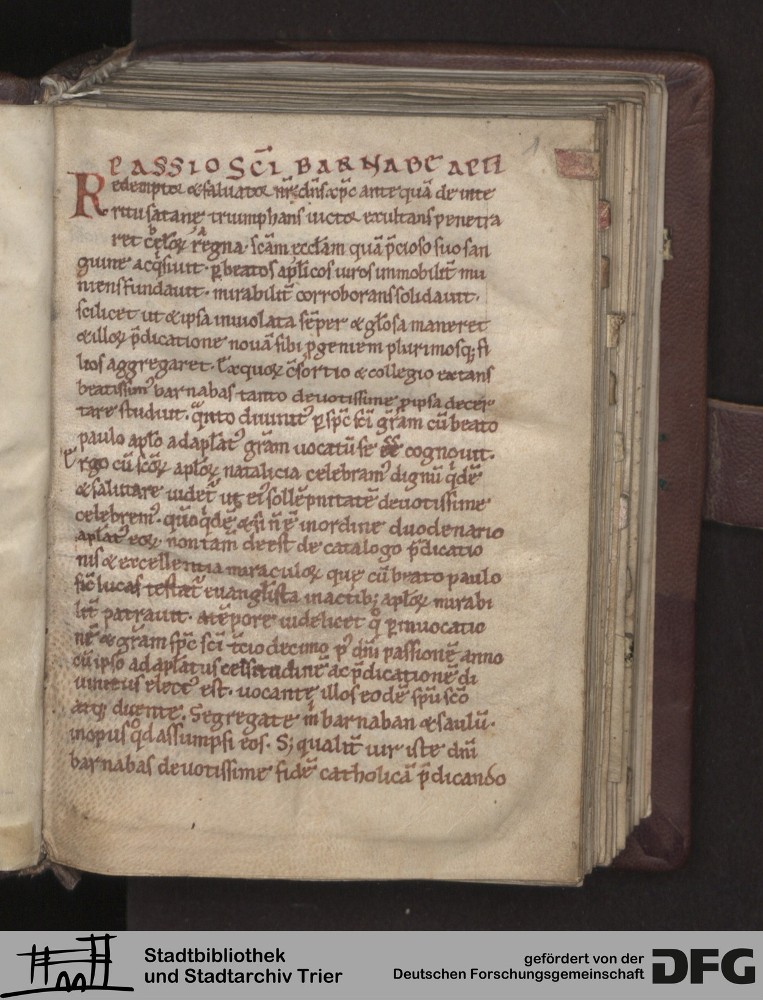 PASSIO SC̄I BARNABE APL̄I
Redemptor & saluator nr̄ dn̄s xp̄c antequā de inte
ritu satanę triumphans uictor exultans penetra
ret cęloꝝ regna. scām ęccl̄am quā p̄cioso suo san
guine acq̇siuit. ꝑ beatos apl̄icos uiros inmobilit̄ mu
niens fundauit. mirabilit̄ corroborans solidauit.
scilicet ut & ipsa inuiolata sēper & gl̄osa maneret
& illoꝝ p̄dicatione nouā sibi ꝓgeniem plurimosq; fi
lios aggregaret. Ex quoꝝ c̄sortio & collegio extans
beatissim᾽ barnabas tanto deuotissime ꝓ ipsa decer
tare studuit. q̄nto diuinit᾽ ꝑ sp̄c sc̄i gr̄am cū beato
paulo apl̄o ad apl̄at᾽ gr̄am uocatū se cognouit.
Ergo cū sc̄oꝝ apl̄oꝝ natalicia celebram᾽ dignū q̇dē
& salutare uidet᾽ ut ei᾽ sollēpnitatē deuotissime
celebrem᾽. quōq̇dē & si n̄ ē in ordine duodenario
apl̄at᾽ eoꝝ. non tam̄ deest de catalogo p̄dicatio
nis & excellentia miraculoꝝ que cū beato paulo
sic̄ lucas testat᾽ euangl̄ista in actib; apl̄oꝝ mirabi
lit̄ patrauit. A tēpore uidelicet q̊ ꝑ inuocatio
nē & gr̄am sp̄c sc̄i t̄ciodecimo p᾽ dn̄i passionē anno
cū ipso ad apl̄atus celsitudinē ac p̄dicationē di
uinitus elect᾽ est. uocantę illos eodē sp̄u sc̄o
atq; dicente. Segregate m̊ barnaban & saulū.
in opus q̊d assumpsi eos. S; qualit̄ uir iste dn̄i
barnabas deuotissime fidē catholicā p̄dicando
1
Stadtbibliothek
und Stadtarchiv Trier
gefördert von der
Deutschen Forschungsgemeinschaft
DFG